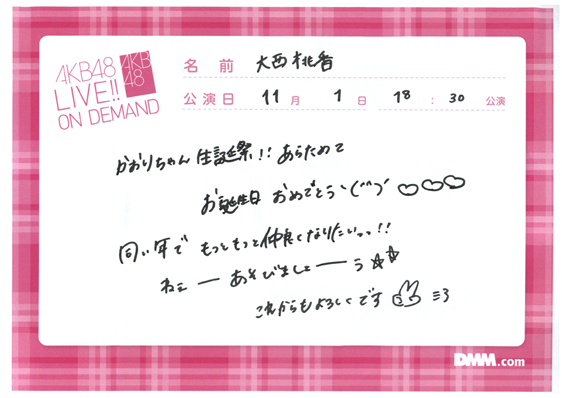 AKB48
LIVE!!
ON DEMAND
AKB
48
名前 大西桃香
公演日 11月 1日 18:30 公演
かおりちゃん 生誕祭!! あらためて
お誕生日 おめでとう、(^^)´ ♡♡♡
同い年で もっともっと仲良くなりたいっっ!!
ねぇー あそびましょーう ☆☆
これからもよろしくです ミ3
DMM.com